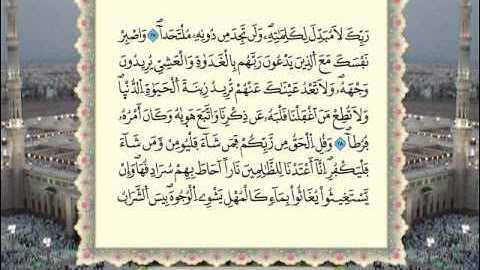 رَبِّكَ لَا مُبَدِّلَ لِكَلِمَاتِهِ وَلَن تَجِدَ مِن دُونِهِ مُلْتَحَدًا ﴿٢٧﴾ وَاصْبِرْ
نَفْسَكَ مَعَ الَّذِينَ يَدْعُونَ رَبَّهُم بِالْغَدَوٰةِ وَالْعَشِيِّ يُرِيدُونَ
وَجْهَهُ وَلَا تَعْدُ عَيْنَاكَ عَنْهُمْ تُرِيدُ زِينَةَ الْحَيَوٰةِ الدُّنْيَا
وَلَا تُطِعْ مَنْ أَغْفَلْنَا قَلْبَهُ عَن ذِكْرِنَا وَاتَّبَعَ هَوَىٰهُ وَكَانَ أَمْرُهُ
فُرُطًا ﴿٢٨﴾ وَقُلِ الْحَقُّ مِن رَّبِّكُمْ فَمَن شَآءَ فَلْيُؤْمِن وَمَن شَآءَ
فَلْيَكْفُرْ إِنَّآ أَعْتَدْنَا لِلظَّالِمِينَ نَارًا أَحَاطَ بِهِمْ سُرَادِقُهَا وَإِن
يَسْتَغِيثُوا يُغَاثُوا بِمَآءٍ كَالْمُهْلِ يَشْوِي الْوُجُوهَ بِئْسَ الشَّرَابُ